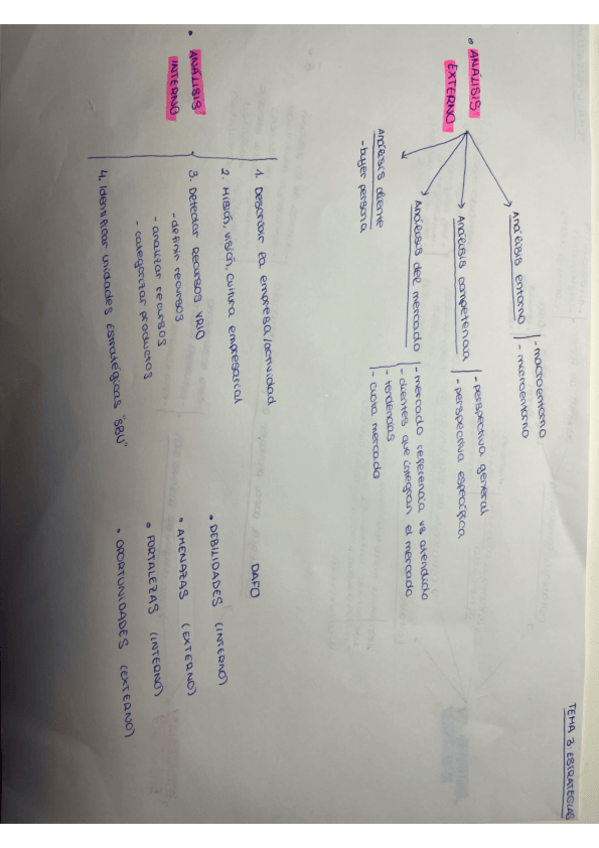 TEMA 3: ESTRATEGIAS
• ANÁLISIS EXTERNO
Análisis entorno
- macroentorno
- microentorno
Análisis competencia
- perspectiva general
- perspectiva específica
Análisis del mercado
- mercado referencia vs atendido
- clientes que integran el mercado
- tendencias
- cuota mercado
Análisis cliente
- buyer persona
• ANÁLISIS INTERNO
1. Describir la empresa/actividad
2. Misión, visión, cultura empresarial
3. Detectar recursos VRIO
- definir recursos
- analizar recursos
- categorizar productos
4. Identificar unidades estratégicas "SBU"
DAFO
• DEBILIDADES (INTERNO)
• AMENAZAS (EXTERNO)
• FORTALEZAS (INTERNO)
• OPORTUNIDADES (EXTERNO)